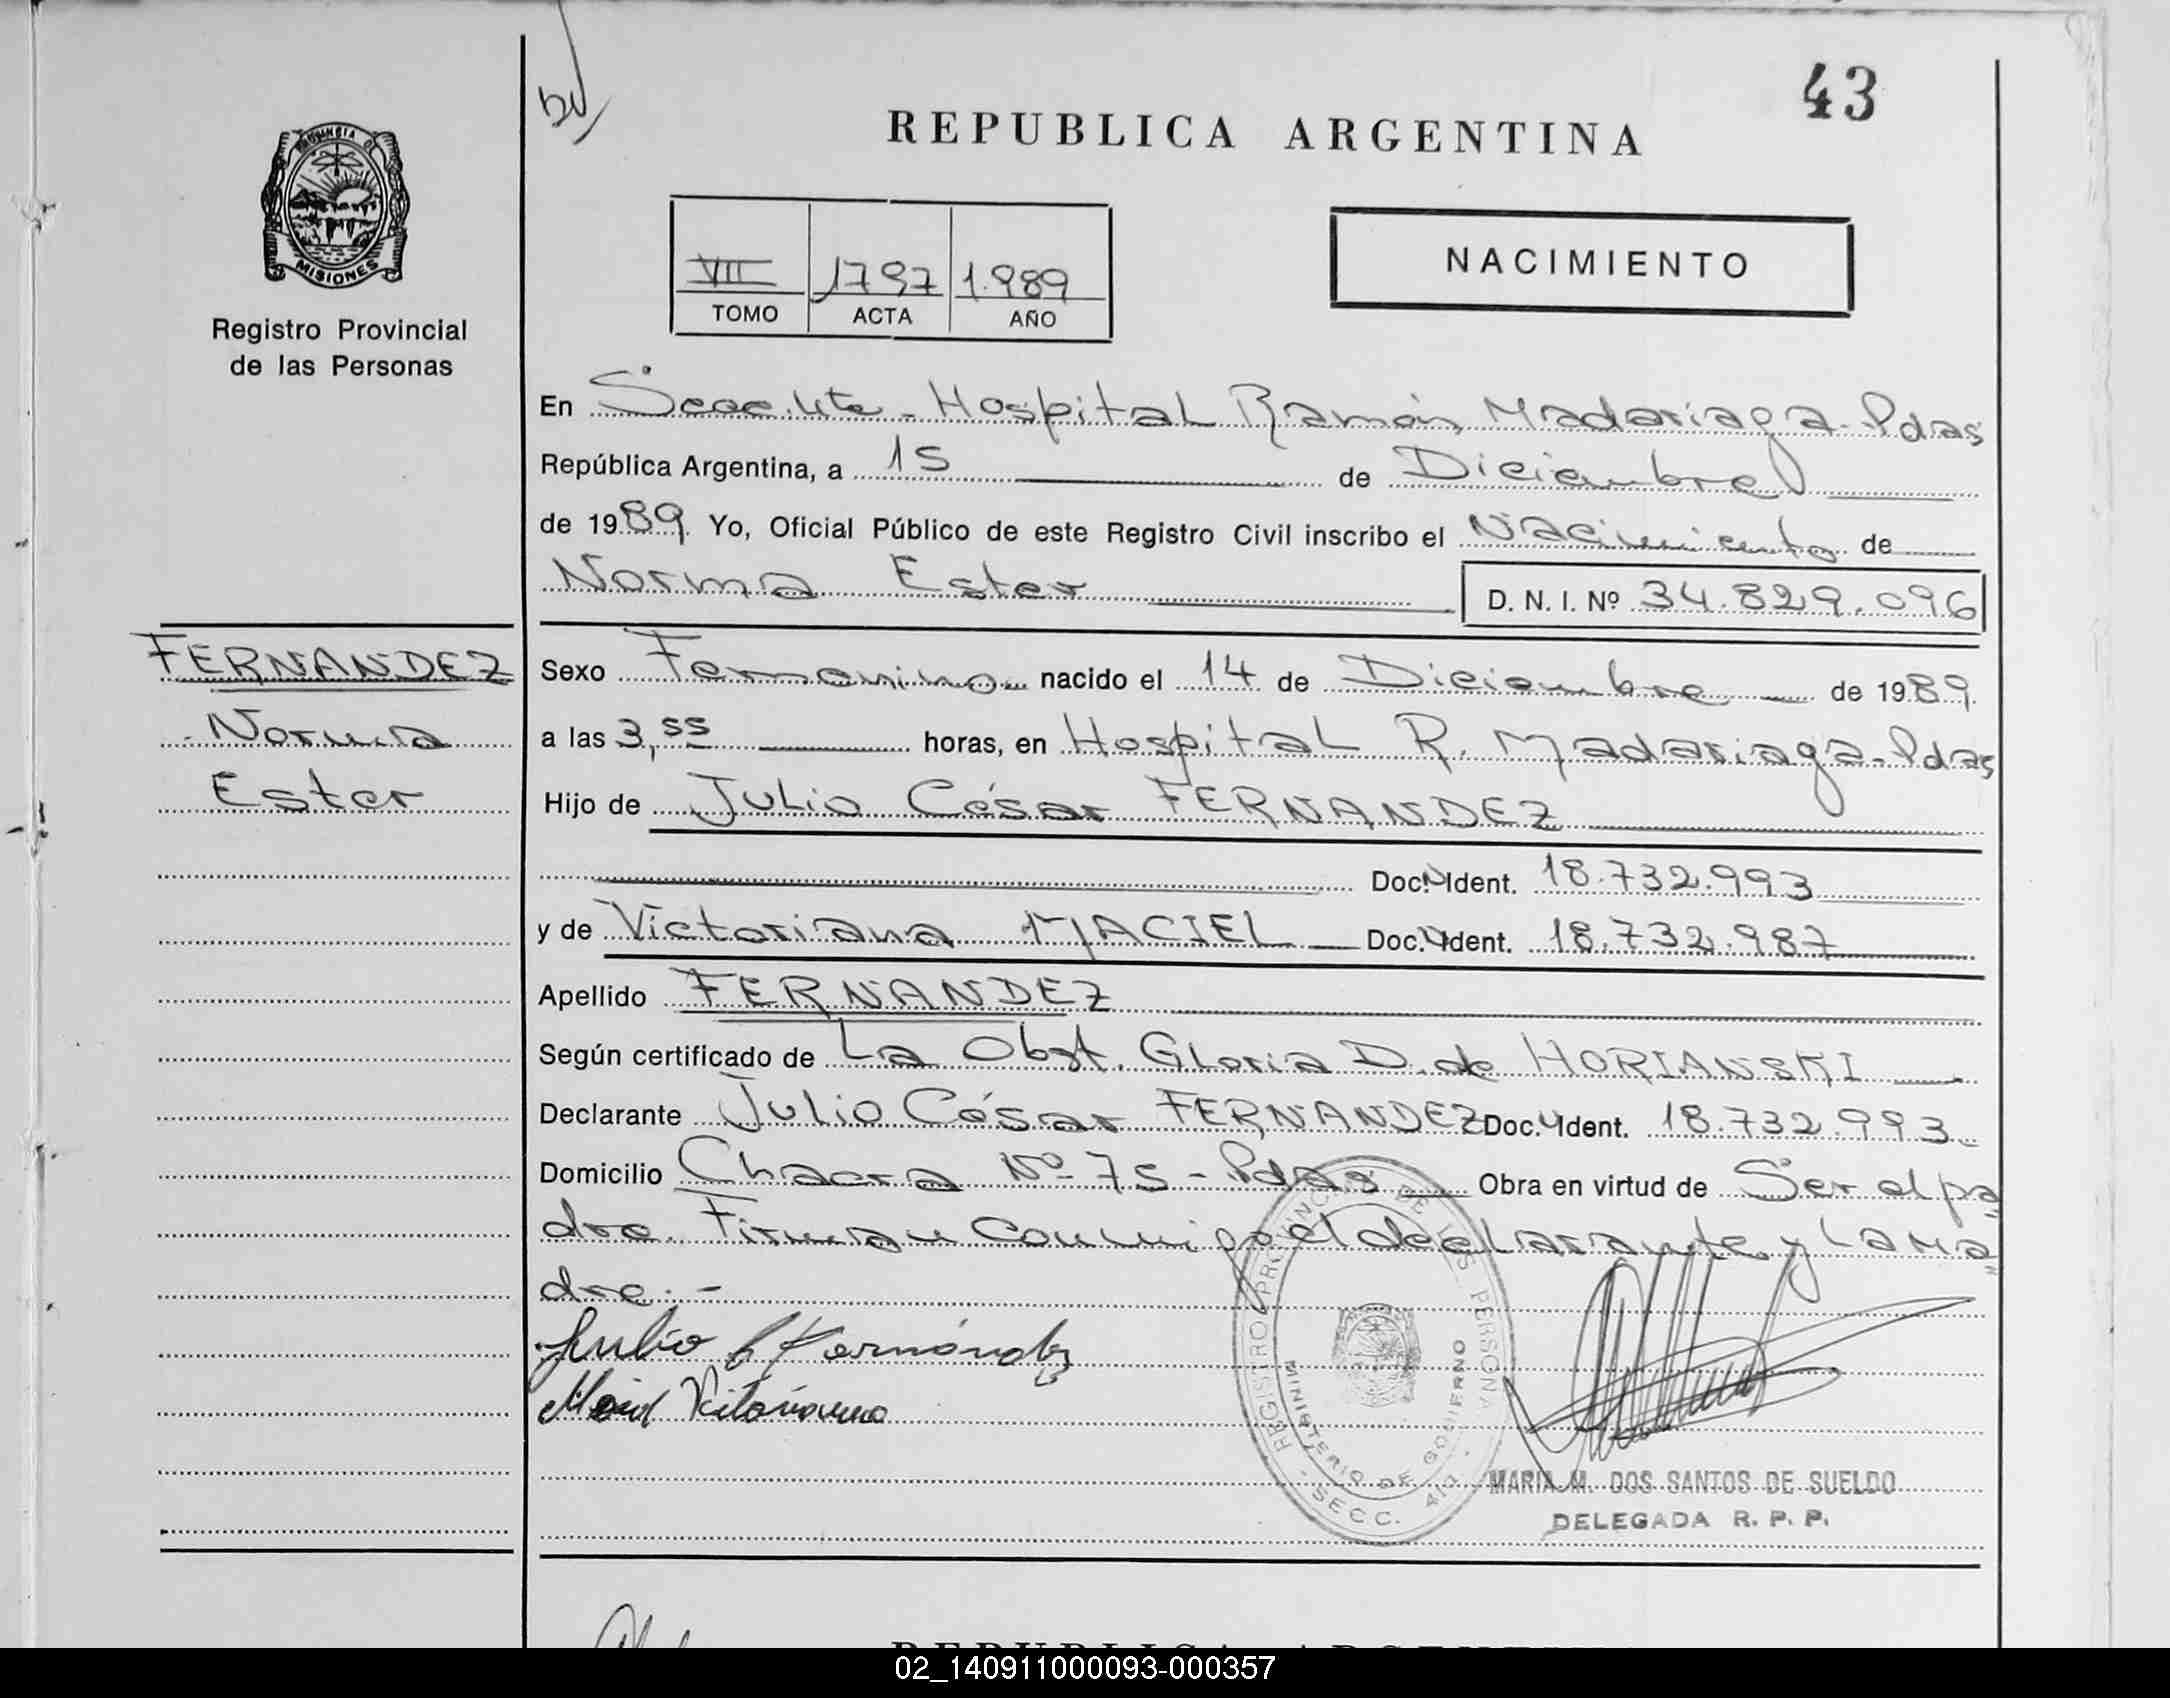 43
REPUBLICA ARGENTINA
PROVINCIA DE
MISIONES
Registro Provincial
de las Personas
VII 1797 1.989
TOMO ACTA AÑO
NACIMIENTO
En Secc. 4ta - Hospital Ramón Madariaga - Pdas
República Argentina, a 15 de Diciembre
de 1989. Yo, Oficial Público de este Registro Civil inscribo el Nacimiento de
Norma Ester D. N. I. Nº 34.829.096
FERNANDEZ
Norma
Ester
Sexo Femenino nacido el 14 de Diciembre de 1989.
a las 3,55 horas, en Hospital R. Madariaga - Pdas
Hijo de Julio César FERNANDEZ
Doc. Ident. 18.732.993
y de Victoriana MACIEL Doc. Ident. 18.732.987
Apellido FERNANDEZ
Según certificado de La Obst. Gloria D. de HORIANSKI
Declarante Julio César FERNANDEZ Doc. Ident. 18.732.993
Domicilio Chacra Nº 75 - Pdas Obra en virtud de Ser el pa
dre. Firman conmigo el declarante y la ma
dre. -
Julio C Fernández
Victoriana
REGISTRO PROVINCIAL DE LAS PERSONAS
MINISTERIO DE GOBIERNO
SECC. 4ta
MARIA M. DOS SANTOS DE SUELDO
DELEGADA R. P. P.
02_140911000093-000357